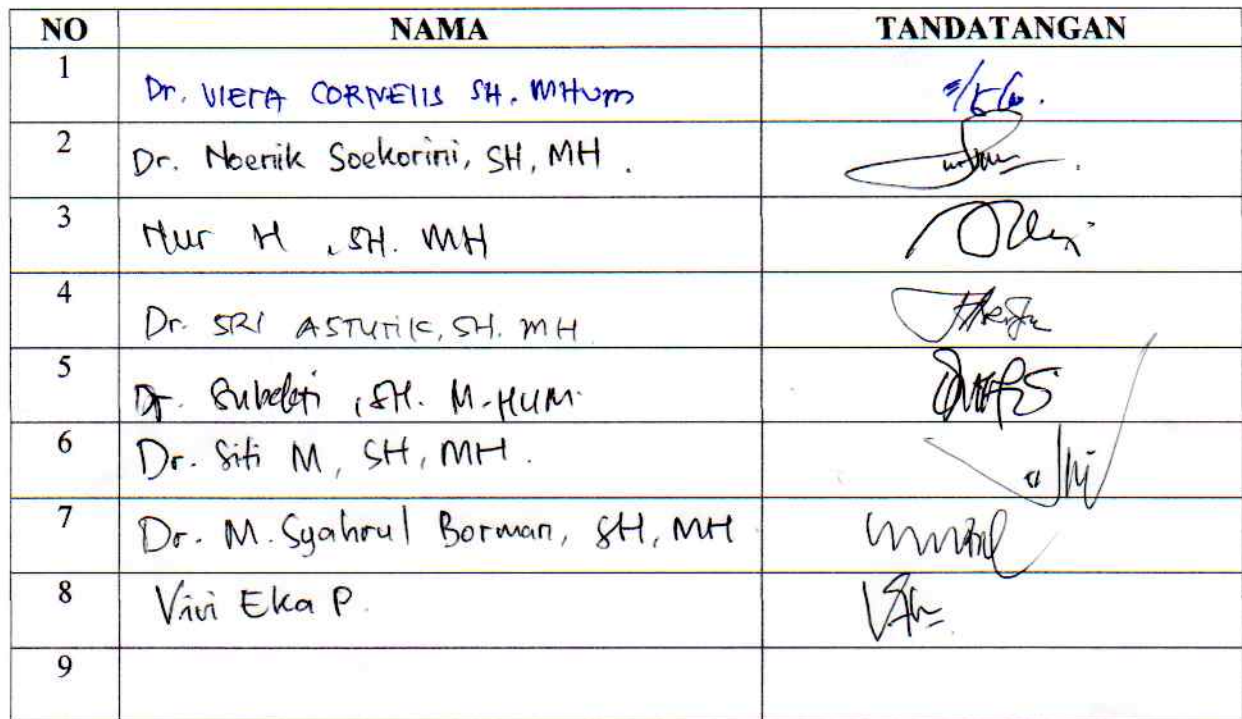 NO NAMA TANDATANGAN
1 Dr. VIERA CORNELIS SH. MHum
2 Dr. Noenik Soekorini, SH, MH.
3 Nur H, SH. MH
4 Dr. SRI ASTUTIK, SH. MH
5 Dr. Subekti, SH. M.HUM.
6 Dr. Siti M, SH, MH.
7 Dr. M. Syahrul Borman, SH, MH
8 Vivi Eka P.
9